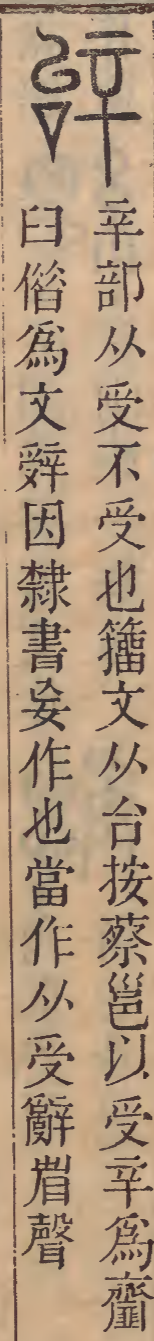 辝
辛部从受不受也籒文从台按蔡邕以受辛爲齏
臼偺爲文辤因隸書妄作也當作从受辭省聲